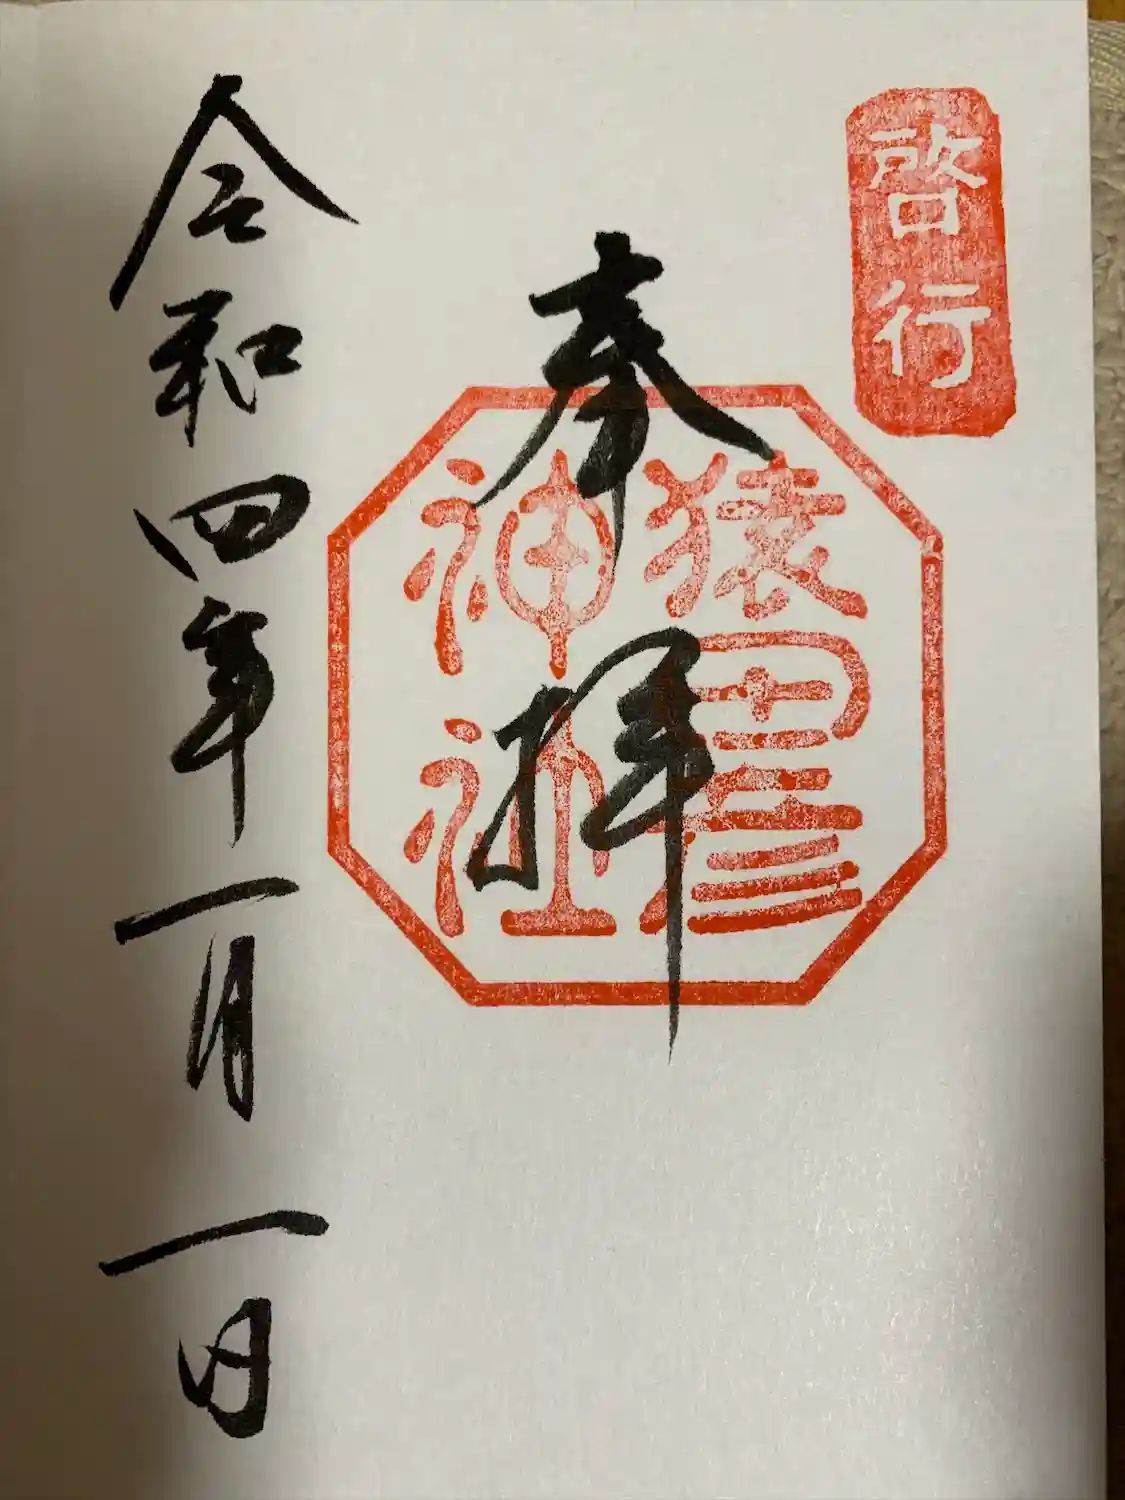 啓行
奉拝
猿田彦
神社
令和四年一月一日